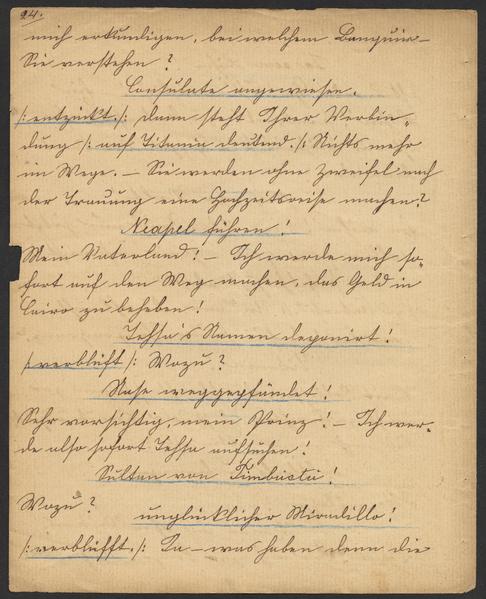 24.
mich erkundigen, bei welchem Banquier –
Sie verstehen?
Consulate angewiesen.
/: entzückt. :/ dann steht Ihrer Verbin-
dung /: auf Titania deutend. :/ Nichts mehr
im Wege. – Sie werden ohne Zweifel nach
der Trauung eine Hochzeitsreise machen?
Neapel führen!
Mein Vaterland! – Ich werde mich so-
fort auf den Weg machen, das Geld in
Cairo zu beheben!
Tessa's Namen deponirt!
/: verblüfft :/ Wozu?
Nase weggepfändet!
Sehr vorsichtig, mein Prinz! – Ich wer-
de also sofort Tessa aufsuchen!
Sultan von Timbuctu!
Wozu?
unglücklicher Miradillo!
/: verblüfft. :/ Ja – was haben denn die